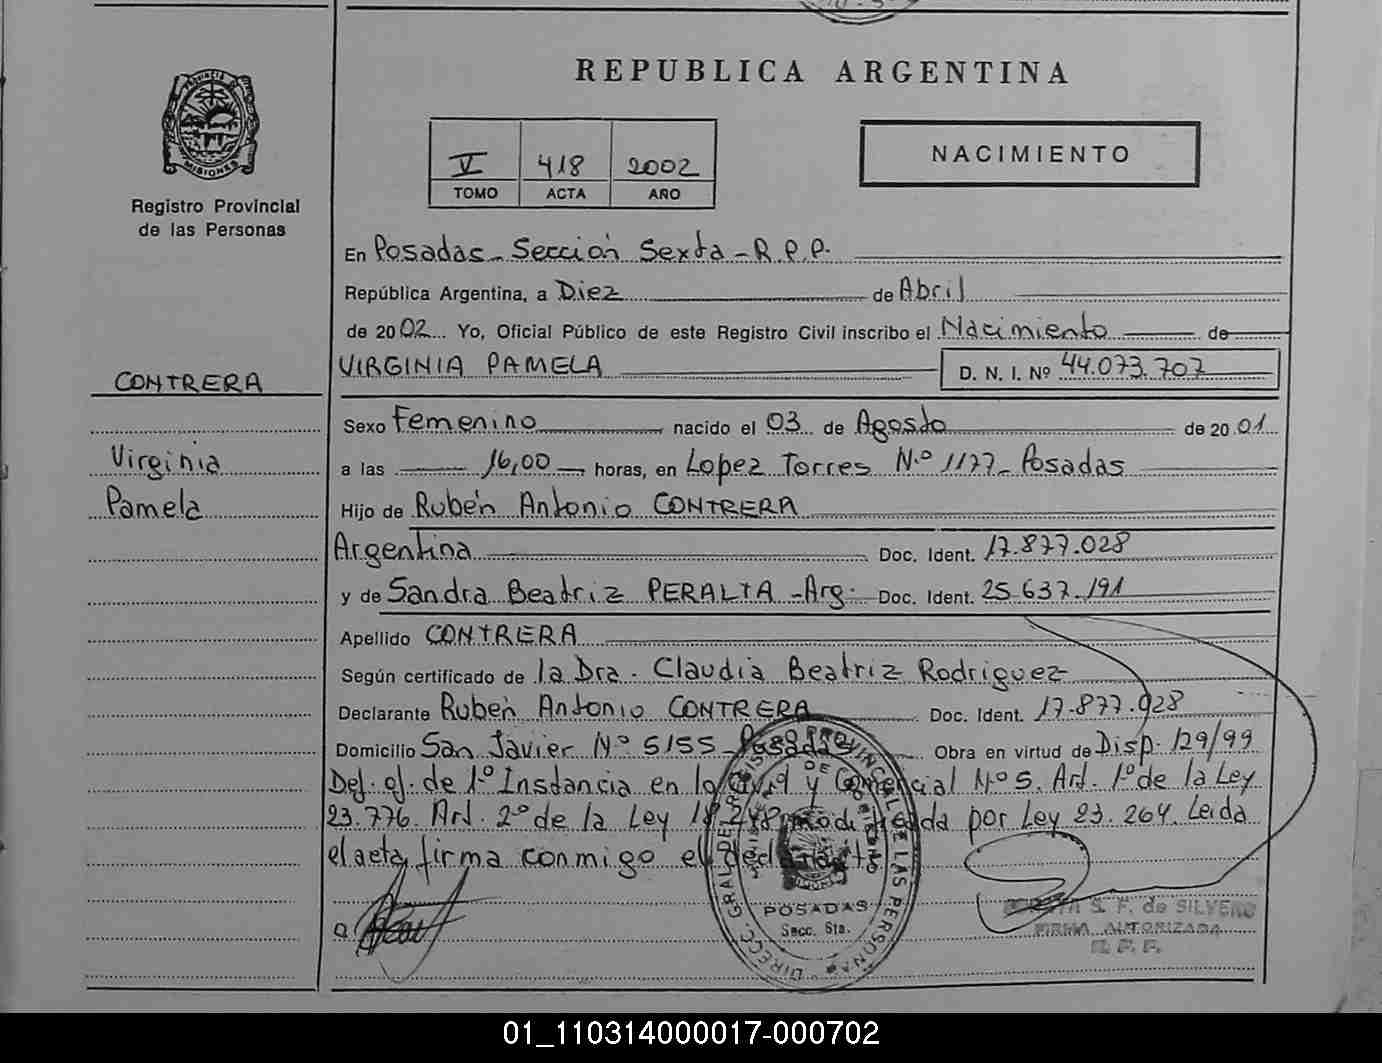 REPUBLICA ARGENTINA
PROVINCIA DE
MISIONES
Registro Provincial
de las Personas
V 418 2002
TOMO ACTA AÑO
NACIMIENTO
En Posadas - Sección Sexta - R.P.P.
República Argentina, a Diez de Abril
de 2002 Yo, Oficial Público de este Registro Civil inscribo el Nacimiento de
VIRGINIA PAMELA D. N. I. Nº 44.073.707
CONTRERA
Virginia
Pamela
Sexo Femenino nacido el 03 de Agosto de 2001
a las 16,00 horas, en Lopez Torres N.º 1177 - Posadas
Hijo de Rubén Antonio CONTRERA
Argentina Doc. Ident. 17.877.028
y de Sandra Beatriz PERALTA - Arg. Doc. Ident. 25.637.191
Apellido CONTRERA
Según certificado de la Dra. Claudia Beatriz Rodriguez
Declarante Rubén Antonio CONTRERA Doc. Ident. 17.877.028
Domicilio San Javier Nº 5155 - Posadas Obra en virtud de Disp. 129/99
Def. of. de 1º Instancia en lo Civil y Comercial Nº 5. Art. 1º de la Ley
23.776. Art. 2º de la Ley 18.248 modificada por Ley 23.264. Leida
el acta, firma conmigo el declarante
DIRECC. GRAL. DEL REGISTRO PROVINCIAL DE LAS PERSONAS
POSADAS
Secc. 6ta.
S. F. de SILVERO
FIRMA AUTORIZADA
R. P. P.
01_110314000017-000702